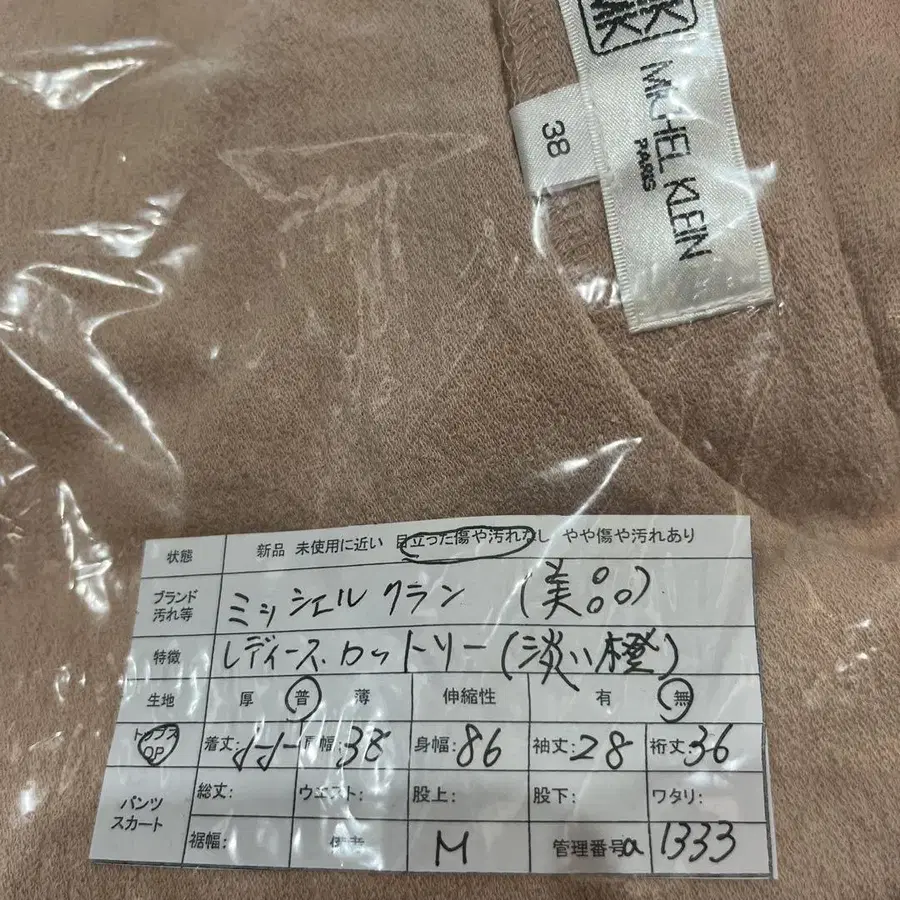 MK
MICHEL KLEIN
PARIS
38
状態 新品 未使用に近い 目立った傷や汚れなし やや傷や汚れあり
ブランド 汚れ等 ミッシェルクラン (美品)
特徴 レディース.カットソー(淡い橙)
生地 厚 普 薄 伸縮性 有 無
トップス OP 着丈: 肩幅:38 身幅:86 袖丈:28 裄丈:36
パンツ スカート 総丈: ウエスト: 股上: 股下: ワタリ:
裾幅: 備考 M 管理番号a 1333